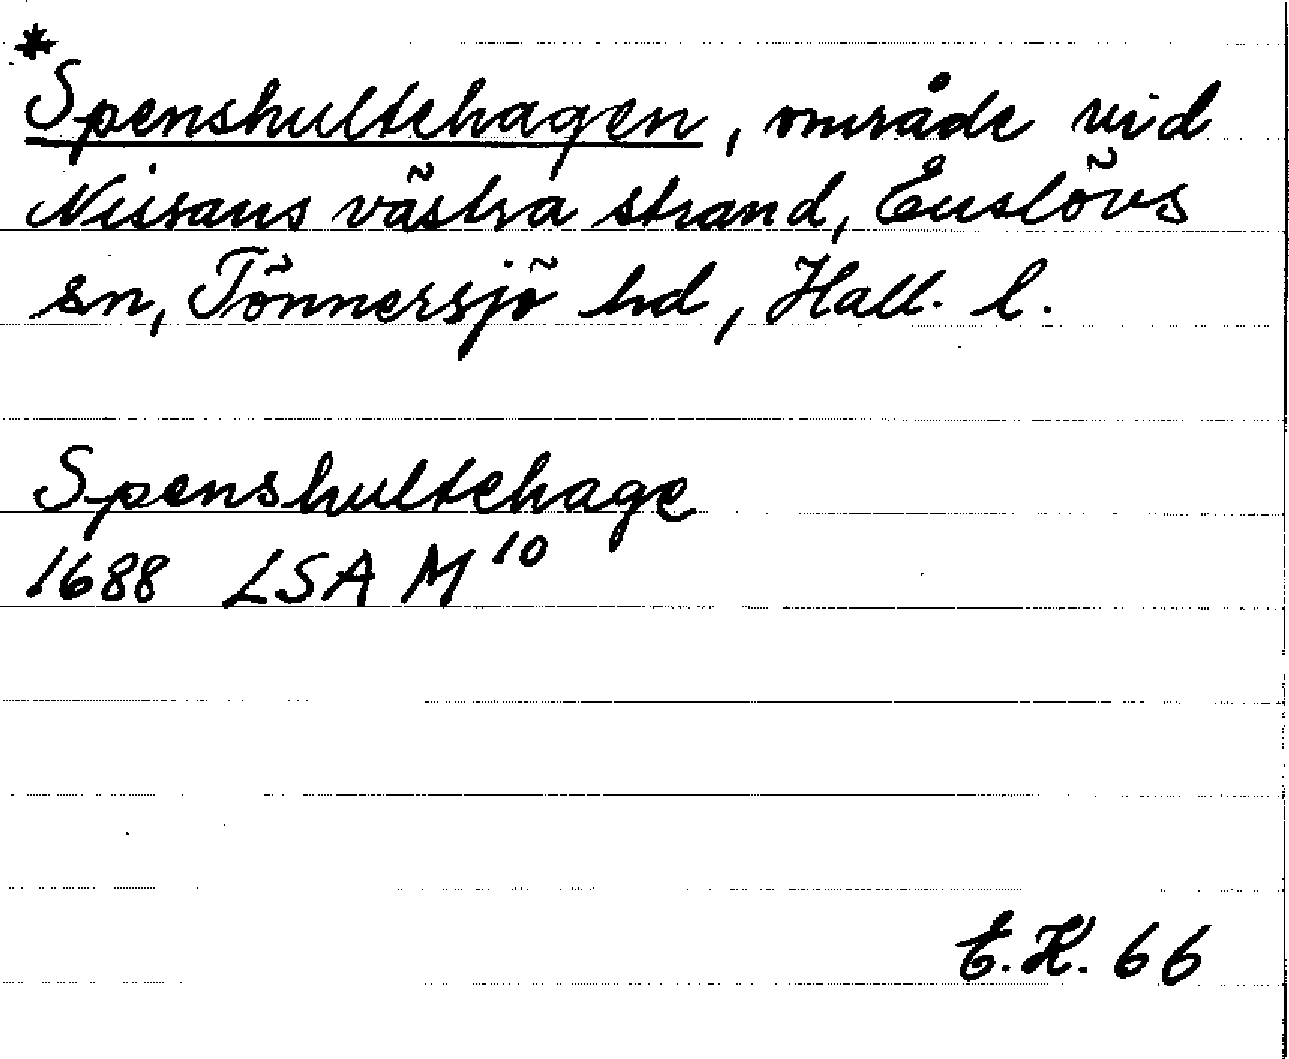 *
Spenshultehagen, område vid
Nissans västra strand, Enslövs
sn, Tönnersjö hd, Hall. l.
Spenshultehage
1688 LSA M 10
E.H. 66